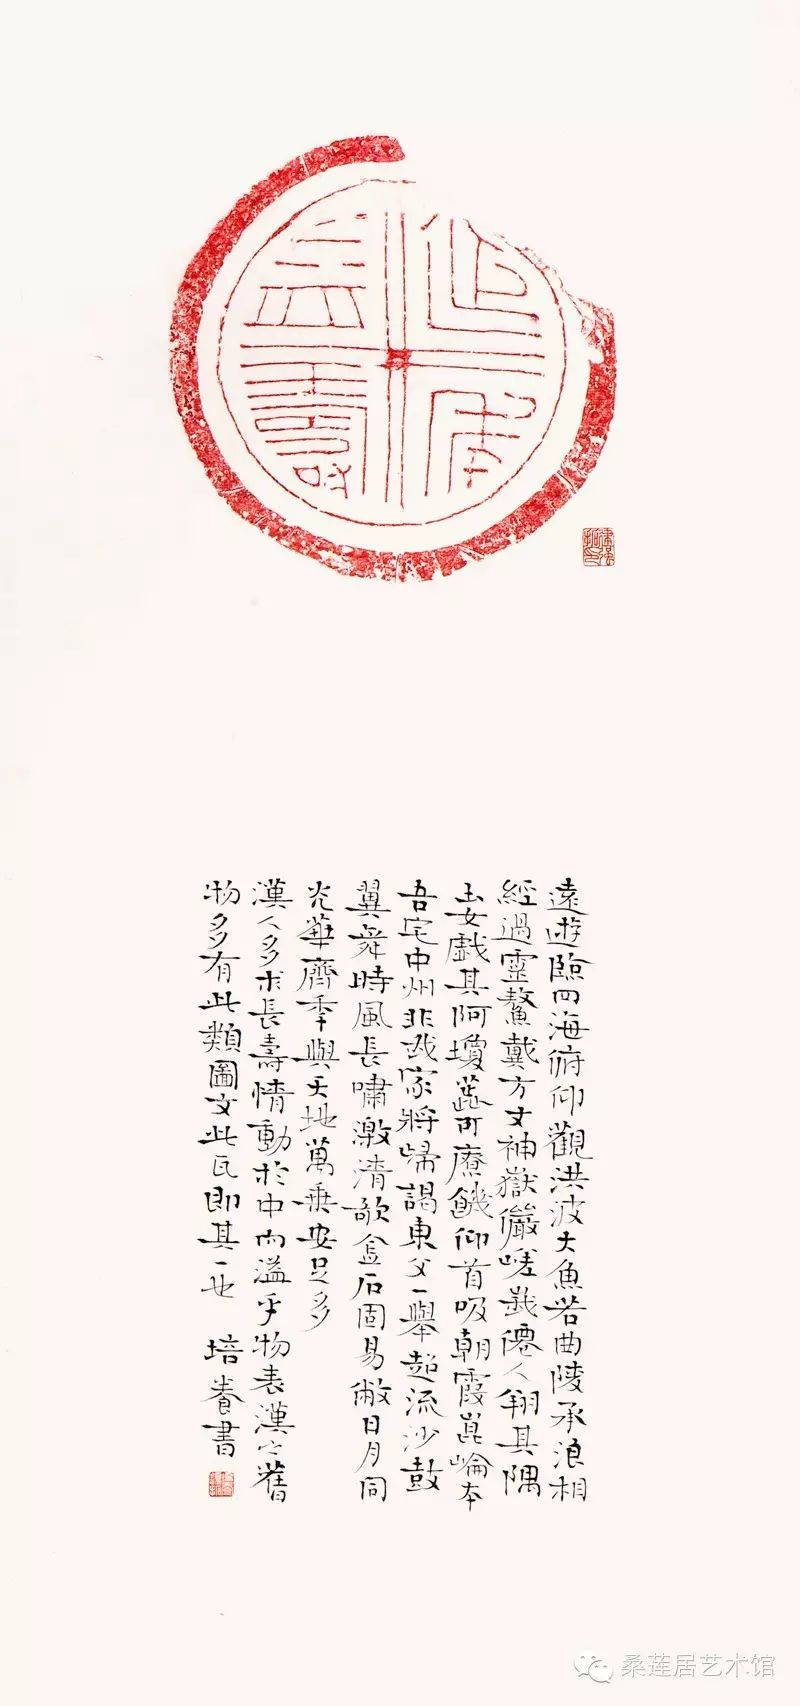 益壽
遠遊臨四海俯仰觀洪波大魚若曲陵承浪相
經過靈鰲戴方丈神嶽儼嵯峨僊人翔其隅
玉女戲其阿瓊蕊可療饑仰首吸朝霞崑崙本
吾宅中州非我家將歸謁東父一舉超流沙鼓
翼舞時風長嘯激清歌金石固易敝日月同
光華齊年與天地萬乘安足多
漢人多求長壽情動於中而溢乎物表漢之舊
物多有此類圖文此瓦即其一也 培養書
桑莲居艺术馆